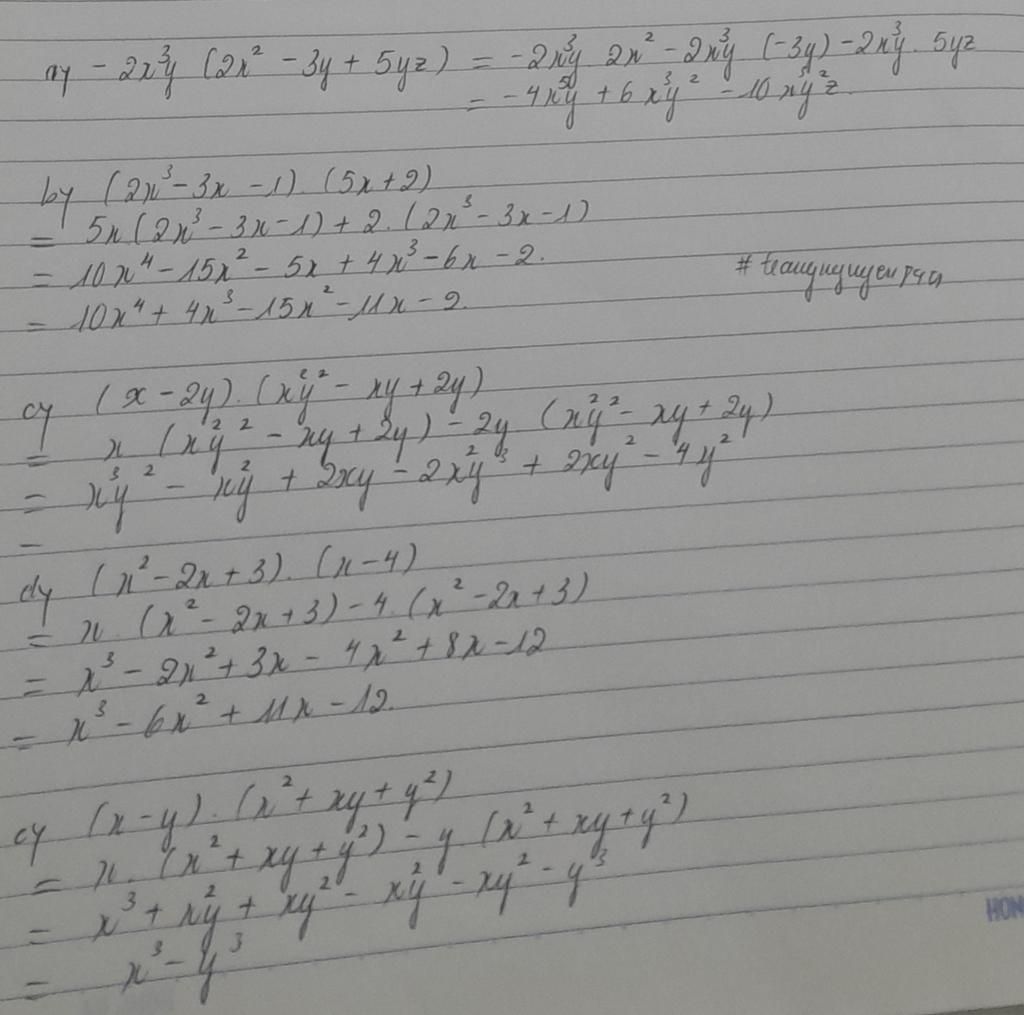 a) -2x³y (2x² - 3y + 5yz) = -2x³y. 2x² - 2x³y (-3y) - 2x³y. 5yz
= -4x⁵y + 6x³y² - 10x³y²z.
b) (2x³ - 3x - 1). (5x + 2)
= 5x (2x³ - 3x - 1) + 2. (2x³ - 3x - 1)
= 10x⁴ - 15x² - 5x + 4x³ - 6x - 2.
= 10x⁴ + 4x³ - 15x² - 11x - 2.
c) (x - 2y). (x²y² - xy + 2y)
= x (x²y² - xy + 2y) - 2y (x²y² - xy + 2y)
= x³y² - x²y + 2xy - 2x²y³ + 2xy² - 4y²
-
d) (x² - 2x + 3). (x - 4)
= x. (x² - 2x + 3) - 4. (x² - 2x + 3)
= x³ - 2x² + 3x - 4x² + 8x - 12
= x³ - 6x² + 11x - 12.
c) (x - y). (x² + xy + y²)
= x. (x² + xy + y²) - y (x² + xy + y²)
= x³ + x²y + xy² - x²y - xy² - y³
= x³ - y³
HON